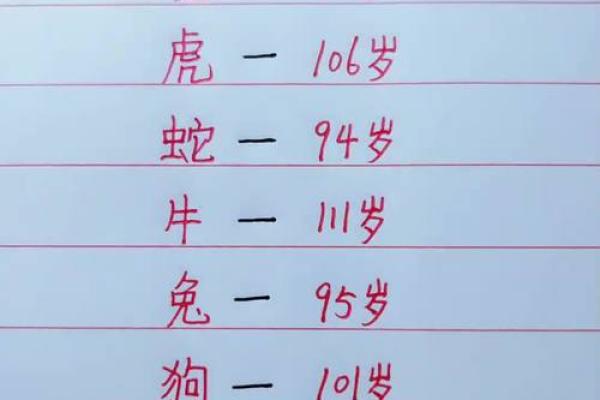 虎 — 106岁
蛇 — 94岁
牛 — 111岁
兔 — 95岁
狗 — 101岁